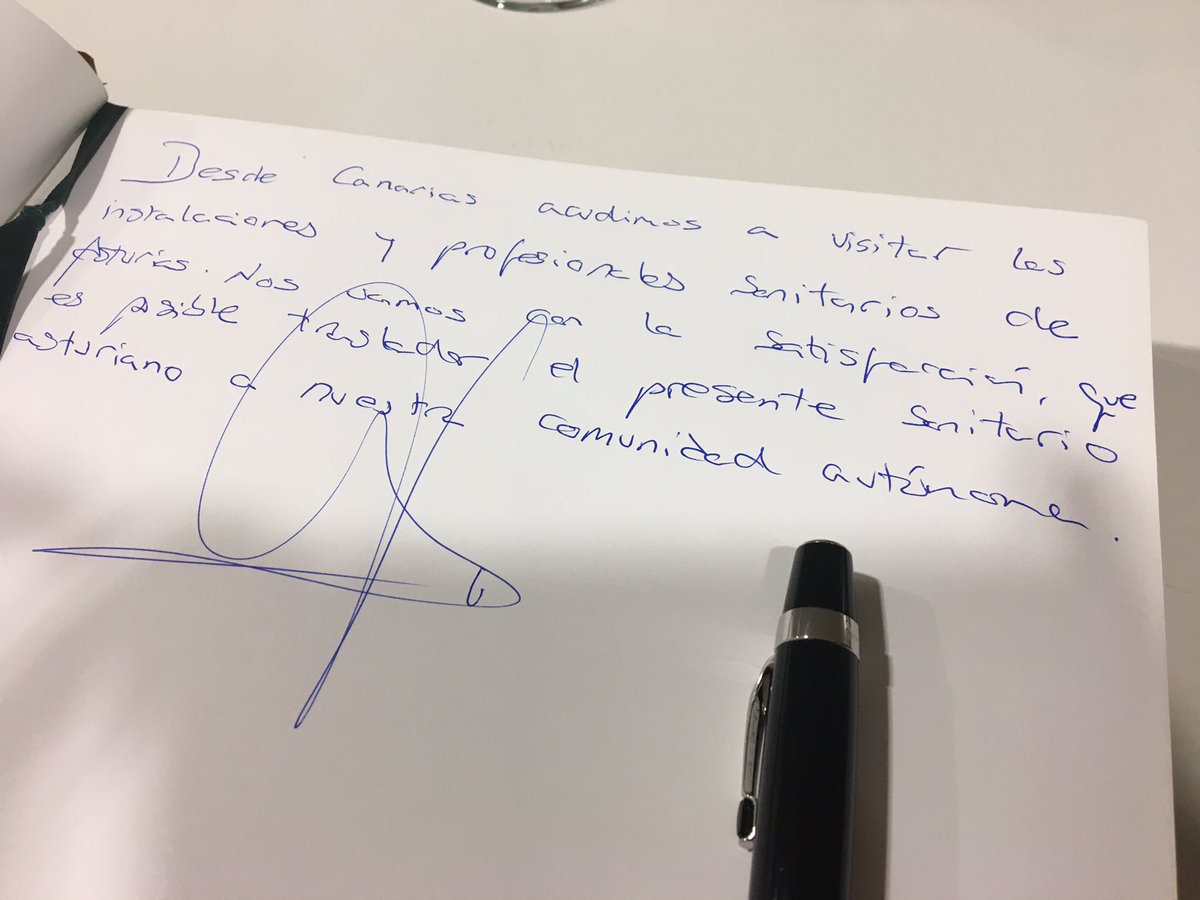 Desde Canarias acudimos a visitar las
instalaciones y profesionales sanitarios de
Asturias. Nos vamos con la satisfacción, que
es posible trasladar el presente sanitario
asturiano a nuestra comunidad autónoma.